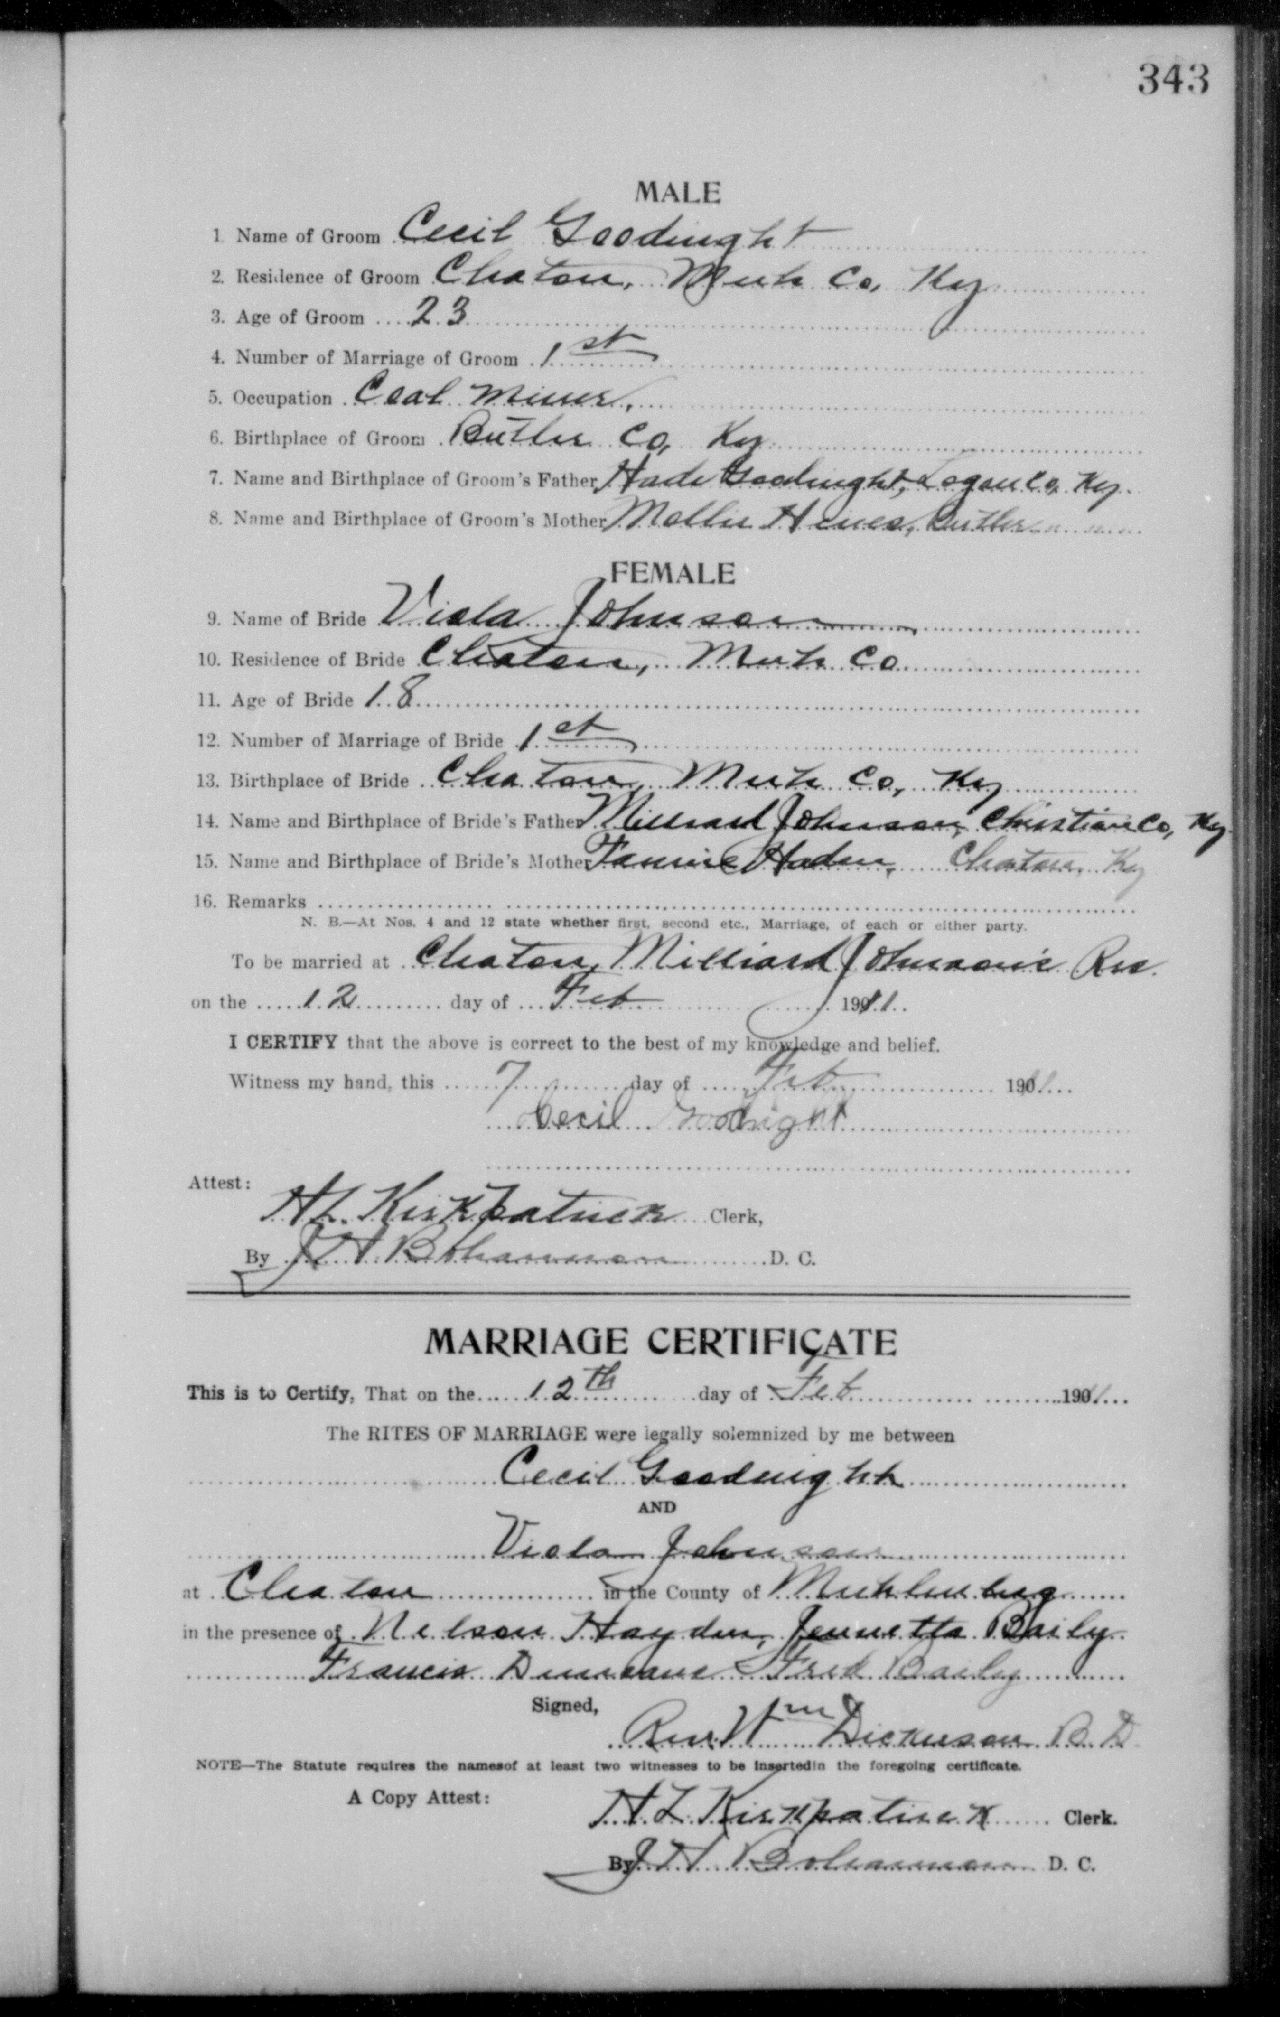 343
MALE
1 Name of Groom Cecil Goodnight
2. Residence of Groom Cleaton, Muh Co, Ky
3. Age of Groom 23
4. Number of Marriage of Groom 1st
5. Occupation Coal Miner,
6. Birthplace of Groom Butler Co, Ky
7. Name and Birthplace of Groom's Father Hade Goodnight, Logan Co, Ky.
8. Name and Birthplace of Groom's Mother Mollie Hines, Butler " "
FEMALE
9. Name of Bride Viola Johnson
10. Residence of Bride Cleaton, Muh Co
11. Age of Bride 18
12. Number of Marriage of Bride 1st
13. Birthplace of Bride Cleaton, Muh Co, Ky
14. Name and Birthplace of Bride's Father Milliard Johnson, Christian Co, Ky.
15. Name and Birthplace of Bride's Mother Fannie Haden, Cleaton, Ky
16. Remarks
N. B.—At Nos. 4 and 12 state whether first, second etc., Marriage, of each or either party.
To be married at Cleaton, Milliard Johnson's Res.
on the 12 day of Feb 1911
I CERTIFY that the above is correct to the best of my knowledge and belief.
Witness my hand, this 7 day of Feb 1911
Cecil Goodnight
Attest:
H L Kirkpatrick Clerk,
By J H Bohannon D. C.
MARRIAGE CERTIFICATE
This is to Certify, That on the 12th day of Feb 1911
The RITES OF MARRIAGE were legally solemnized by me between
Cecil Goodnight
AND
Viola Johnson
at Cleaton in the County of Muhlenberg
in the presence of Nelson Hayden, Jennetta Baily
Francis Fred Baily
Signed,
Rev. Wm Dickinson B. D.
NOTE—The Statute requires the namesof at least two witnesses to be insertedin the foregoing certificate.
A Copy Attest:
H L Kirkpatrick Clerk.
By J H Bohannon D. C.